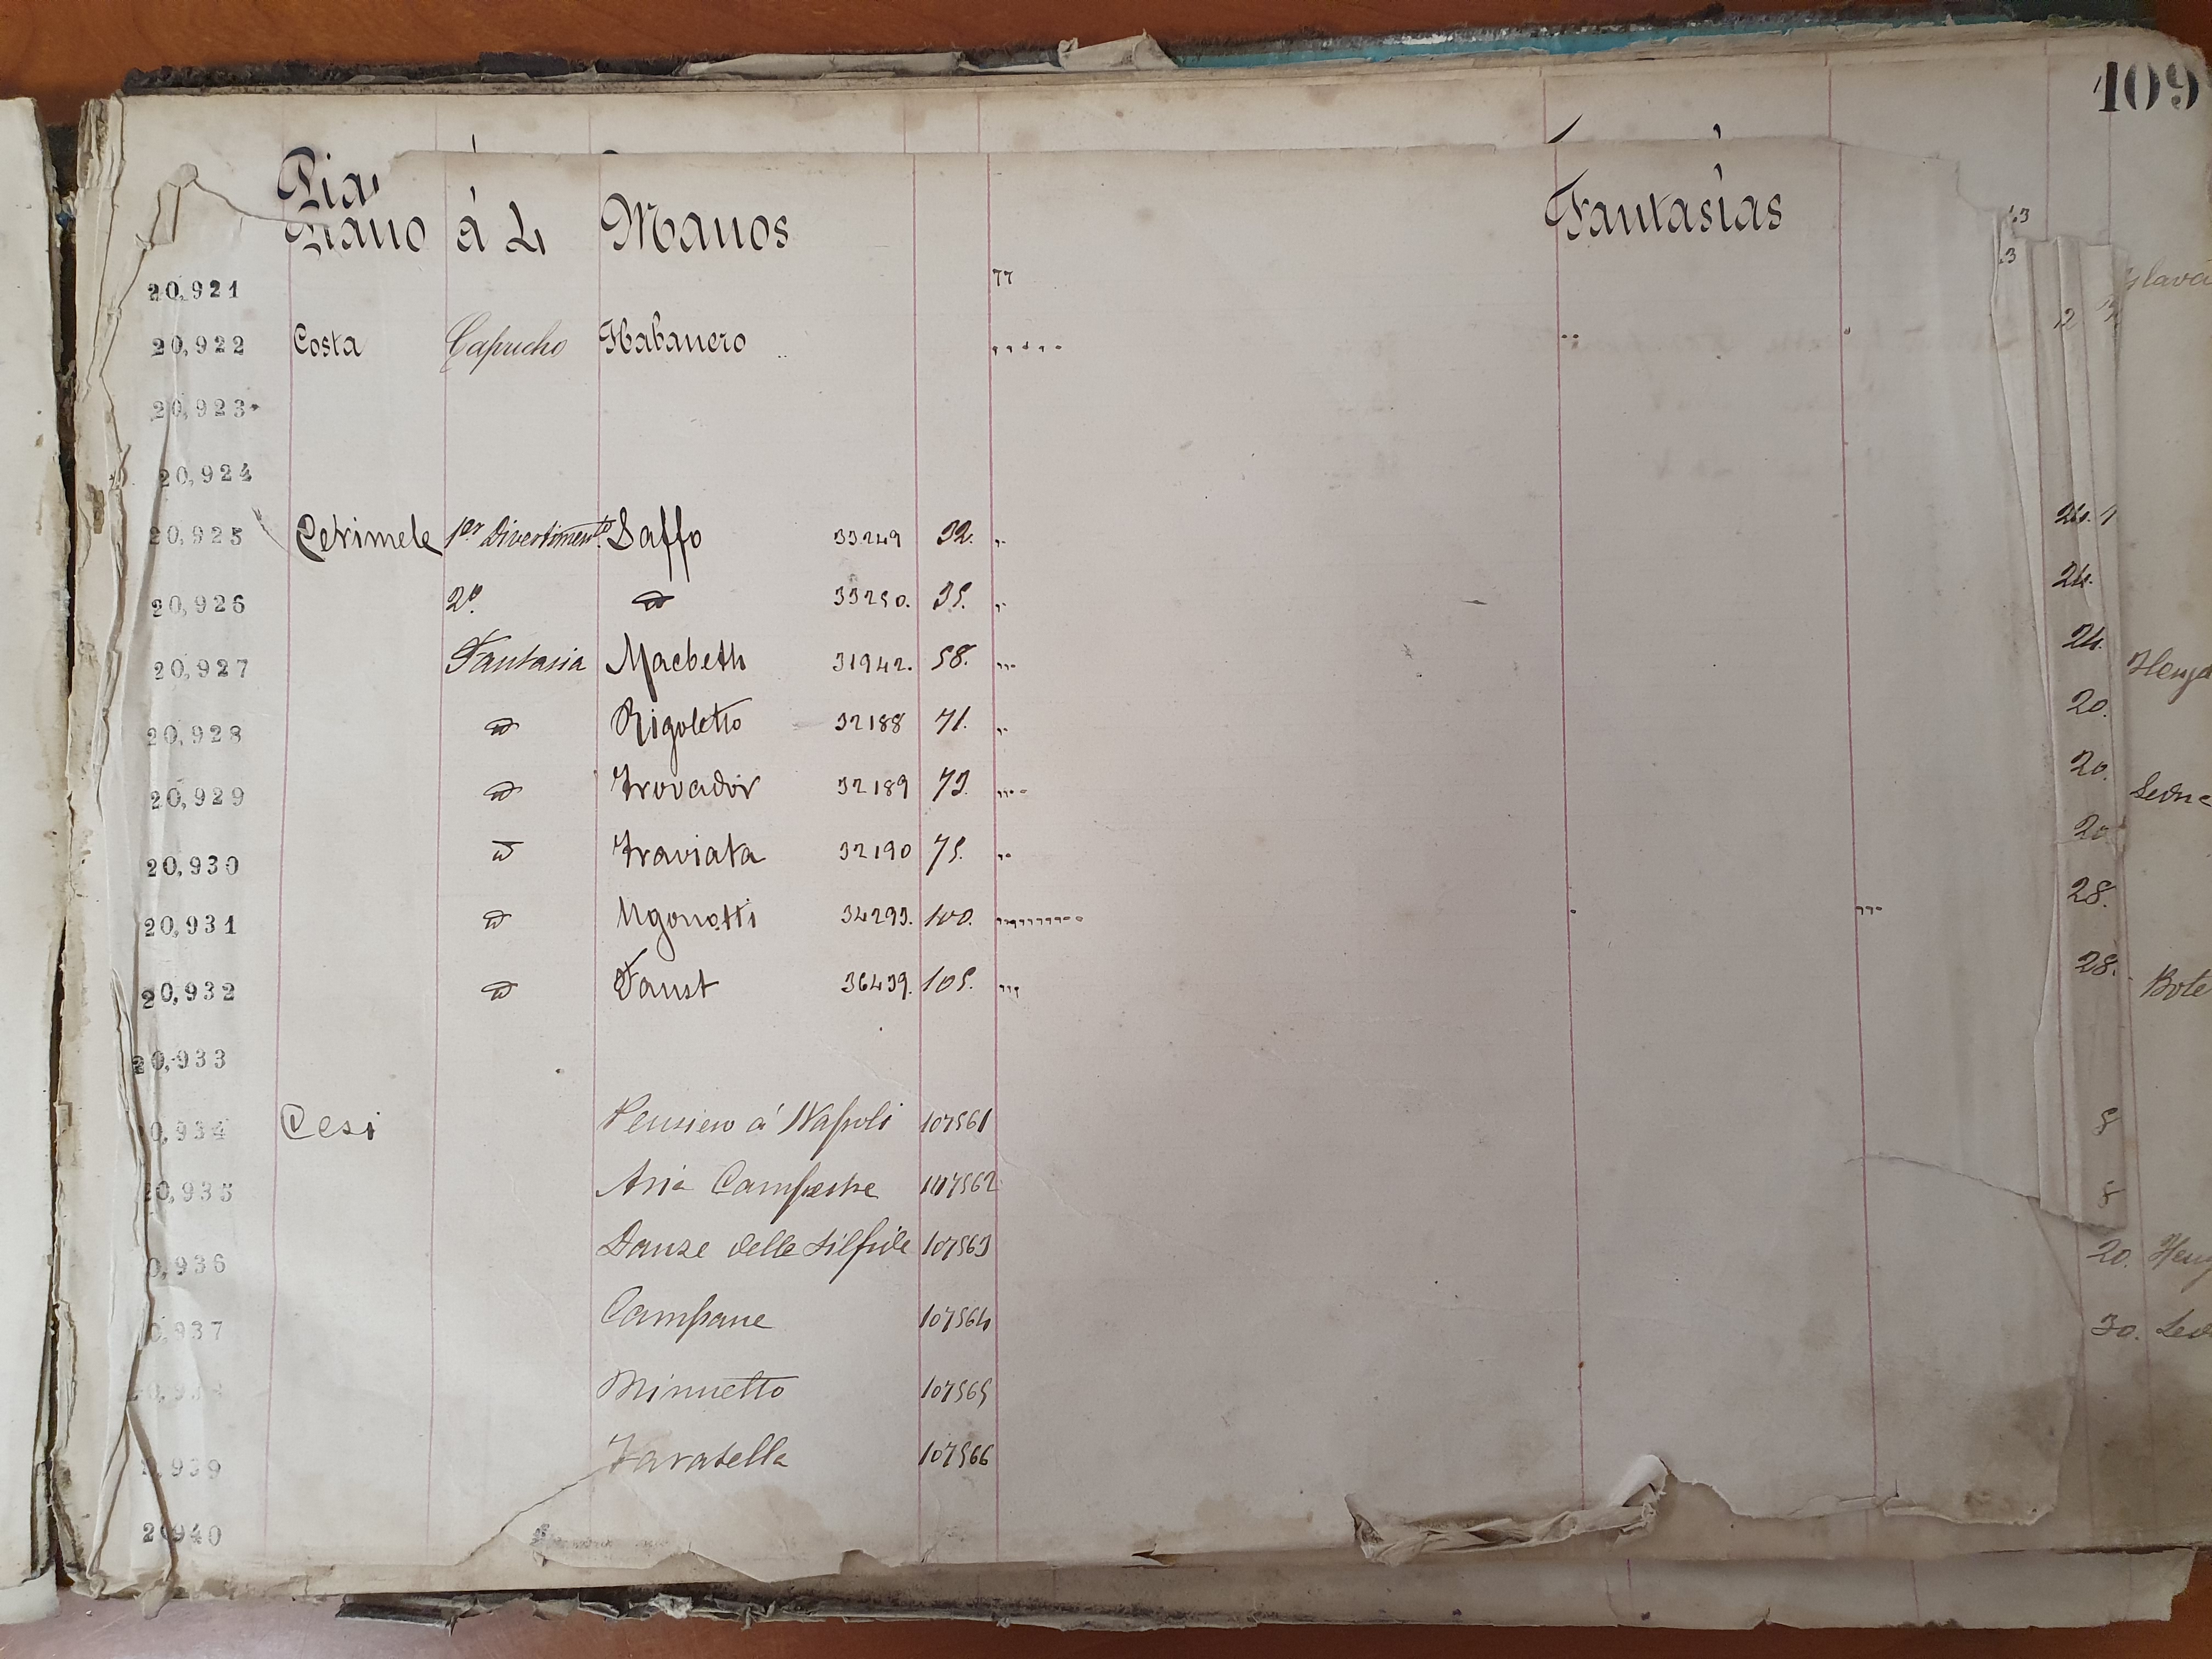 109
Piano á 4 Manos Fantasías
20,921 77
20,922 Costa Capricho Habanero
20,923
20,924
20,925 Cerimele 1er Divertiment.to Saffo 33249 32. 24.
20,926 2º. 33250. 35. 24.
20,927 Fantasia Macbeth 31942. 58. 24.
20,928 Rigoletto 32188 71. 20.
20,929 Trovador 32189 73. 20.
20,930 Traviata 32190 75. 20
20,931 Ugonotti 34293. 100. 28.
20,932 Faust 36439. 105. 28. Bote
20,933
0,934 Cesi Pensiero á Napoli 107561 8
20,935 Aria Campestre 107562 8
0,936 Danze delle Silfide 107563 20.
0,937 Campane 107564 30.
Minuetto 107565
,939 Taratella 107566
20,940